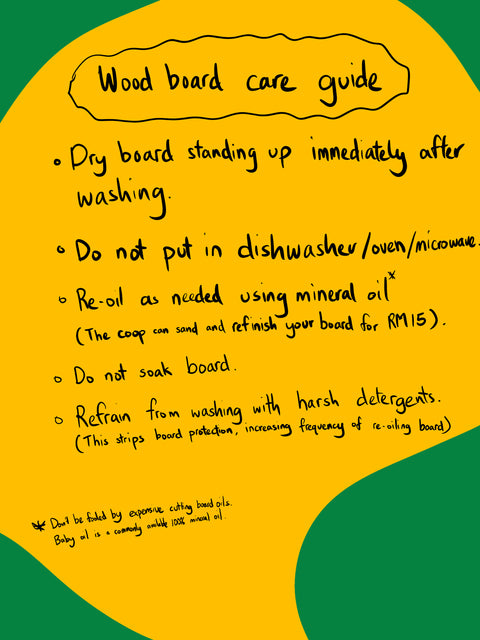 Wood board care guide
• Dry board standing up immediately after
washing.
• Do not put in dishwasher/oven/microwave.
• Re-oil as needed using mineral oil*
(The coop can sand and refinish your board for RM15).
• Do not soak board.
• Refrain from washing with harsh detergents.
(This strips board protection, increasing frequency of re-oiling board)
* Don't be fooled by expensive cutting board oils.
Baby oil is a commonly available 100% mineral oil.